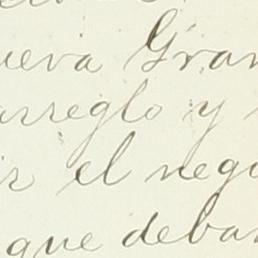 ueva Gran
arreglo y
ir el nego
que deban